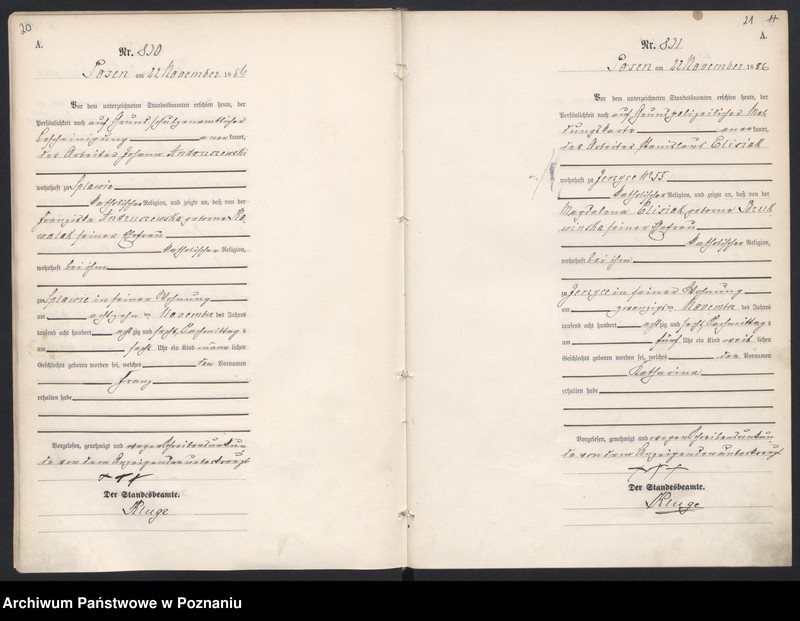 20
A.
Nr. 830
Posen am 22 November 1886
Vor dem unterzeichneten Standesbeamten erschien heute, der
Persönlichkeit nach auf Grund schulzenamtlicher
Bescheinigung anerkannt,
der Arbeiter Johann Andruszewski
wohnhaft zu Splawie
katholischer Religion, und zeigte an, daß von der
Franziska Andruszewska geborne Ko-
walak seiner Ehefrau
katholischer Religion,
wohnhaft bei ihm
zu Splawie in seiner Wohnung
am achtzehn ten November des Jahres
tausend acht hundert achtzig und sechs, Nachmittag s
um sechs Uhr ein Kind männlichen
Geschlechts geboren worden sei, welches den Vornamen
Franz
erhalten habe
Vorgelesen, genehmigt und wegen Schreibensunkun-
de von dem Anzeigenden unterkreuzt
+++
Der Standesbeamte.
Kluge
21
A.
Nr. 831
Posen am 22 November 1886
Vor dem unterzeichneten Standesbeamten erschien heute, der
Persönlichkeit nach auf Grund polizeilicher Mel-
dungskarte anerkannt,
der Arbeiter Stanislaus Elisiak
wohnhaft zu Jerzyce No 55
katholischer Religion, und zeigte an, daß von der
Magdalena Elisiak geborne
seiner Ehefrau
katholischer Religion,
wohnhaft bei ihm
zu Jerzyce in seiner Wohnung
am zwanzigs ten November des Jahres
tausend acht hundert achtzig und sechs Nachmittag s
um fünf Uhr ein Kind weiblichen
Geschlechts geboren worden sei, welches den Vornamen
Katharina
erhalten habe
Vorgelesen, genehmigt und wegen Schreibensunkun-
de von dem Anzeigenden unterkreuzt
+++
Der Standesbeamte.
Kluge
Archiwum Państwowe w Poznaniu